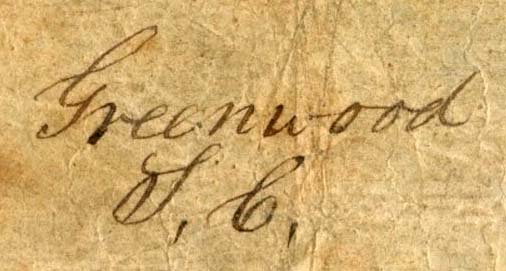 Greenwood
S, C,